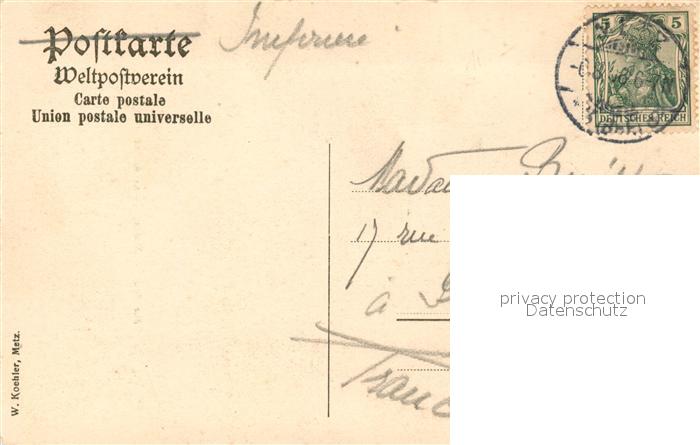 Postkarte Imprimé
Weltpostverein
Carte postale
Union postale universelle
5 5
DEUTSCHES REICH
Madame
17 rue
à
France
privacy protection
Datenschutz
W. Koehler, Metz.